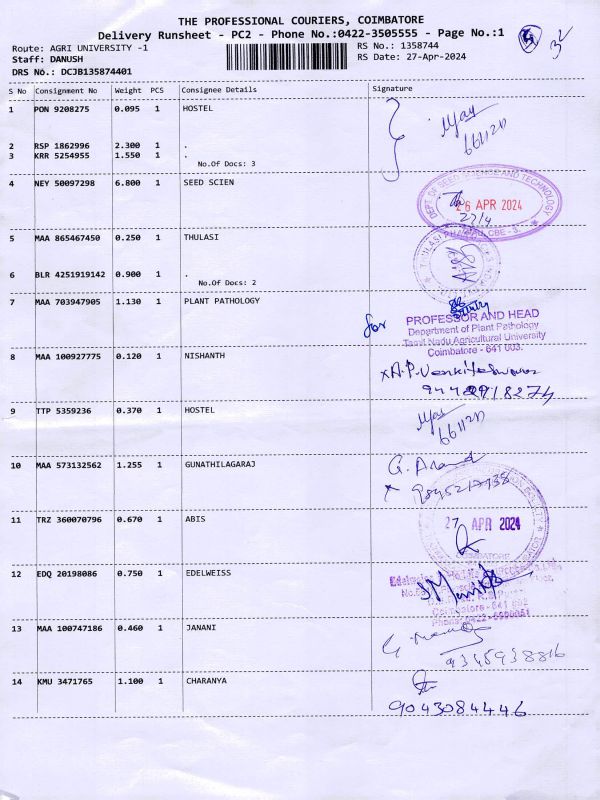 THE PROFESSIONAL COURIERS, COIMBATORE
Delivery Runsheet - PC2 - Phone No.:0422-3505555 - Page No.:1
Route: AGRI UNIVERSITY -1
RS No.: 1358744
Staff: DANUSH
RS Date: 27-Apr-2024
DRS No.: DCJB135874401
S No Consignment No Weight PCS Consignee Details Signature
1 PON 9208275 0.095 1 HOSTEL
2 RSP 1862996 2.300 1 .
3 KRR 5254955 1.550 1 .
No.Of Docs: 3
4 NEY 50097298 6.800 1 SEED SCIEN
DEPT. OF SEED SCIENCE AND TECHNOLOGY
26 APR 2024
27/4
5 MAA 865467450 0.250 1 THULASI
6 BLR 4251919142 0.900 1 .
No.Of Docs: 2
7 MAA 703947905 1.130 1 PLANT PATHOLOGY
for
PROFESSOR AND HEAD
Department of Plant Pathology
Tamil Nadu Agricultural University
Coimbatore - 641 003.
8 MAA 100927775 0.120 1 NISHANTH
9 TTP 5359236 0.370 1 HOSTEL
10 MAA 573132562 1.255 1 GUNATHILAGARAJ
G. Anand
11 TRZ 360070796 0.670 1 ABIS
27 APR 2024
12 EDQ 20198086 0.750 1 EDELWEISS
13 MAA 100747186 0.460 1 JANANI
9345938816
14 KMU 3471765 1.100 1 CHARANYA
9043084446